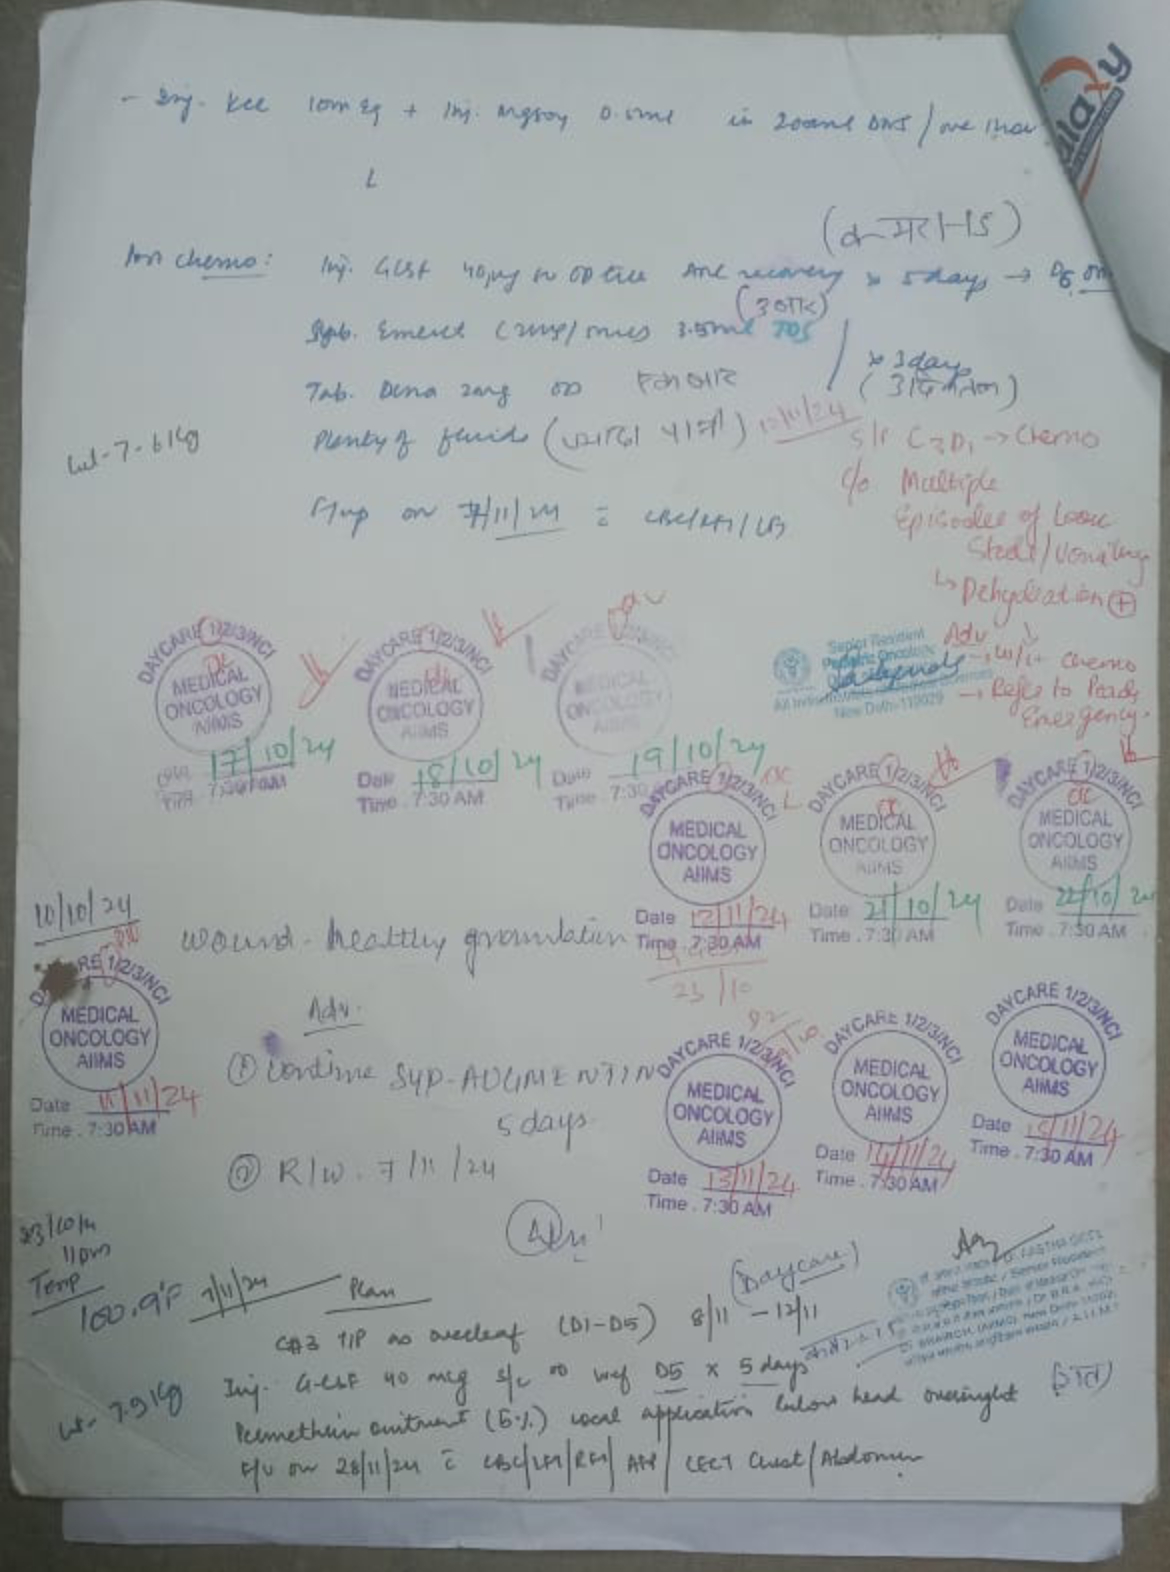 - Inj. KCl 10mEq + Inj. MgSO4 0.5ml in 200ml DNS / one hour
Post chemo:
(कमरा-15)
Inj. GCSF 40µg SC OD till ANC recovery x 5 days → D6 on
Syp. Emeset (2mg/5ml) 3.5ml TDS
Tab. Dexa 2mg OD एक बार
x 3 days
(3 दिन)
Wt-7.61Kg
Plenty of fluids (ज्यादा पानी)
F/up on 7/11/24 c̄ CBC/KFT/LFT
12/11/24
S/P C3D1 → Chemo
c/o Multiple
Episodes of Loose
Stool/Vomiting
↳ Dehydration (+)
Adv
→ w/h chemo
→ Refer to Paeds
Emergency.
Senior Resident
Pediatric Oncology
New Delhi-110029
DAYCARE 1/2/3/NCI
MEDICAL
ONCOLOGY
AIIMS
Date 17/10/24
Time . 7:30 AM
DAYCARE 1/2/3/NCI
MEDICAL
ONCOLOGY
AIIMS
Date 18/10/24
Time . 7:30 AM
DAYCARE
MEDICAL
ONCOLOGY
AIIMS
Date 19/10/24
Time . 7:30
DAYCARE 1/2/3/NCI
MEDICAL
ONCOLOGY
AIIMS
Date 12/11/24
Time . 7:30 AM
DAYCARE 1/2/3/NCI
MEDICAL
ONCOLOGY
AIIMS
Date 21/10/24
Time . 7:30 AM
DAYCARE 1/2/3/NCI
MEDICAL
ONCOLOGY
AIIMS
Date 22/10/24
Time . 7:30 AM
10/10/24
wound - healthy granulation
23/10
1/2/3/NCI
MEDICAL
ONCOLOGY
AIIMS
Date 11/11/24
Time . 7:30 AM
Adv.
① Continue SYP-AUGMENTIN
5 days
② R/W. 7/11/24
DAYCARE 1/2/3/NCI
MEDICAL
ONCOLOGY
AIIMS
Date 13/11/24
Time . 7:30 AM
DAYCARE 1/2/3/NCI
MEDICAL
ONCOLOGY
AIIMS
Date 14/11/24
Time . 7:30 AM
DAYCARE 1/2/3/NCI
MEDICAL
ONCOLOGY
AIIMS
Date 15/11/24
Time . 7:30 AM
23/10/24
11pm
Temp
100.9°F
7/11/24
Plan
(Daycare)
C#3 as overleaf (D1-D5) 8/11 - 12/11
Wt- 7.9 Kg
Inj. G-CSF 40 mcg s/c OD wef D5 x 5 days
Permethrin ointment (5%) local application below head overnight
F/U on 28/11/24 c̄ CBC/LFT/RFT/AFP/CECT Chest/Abdomen